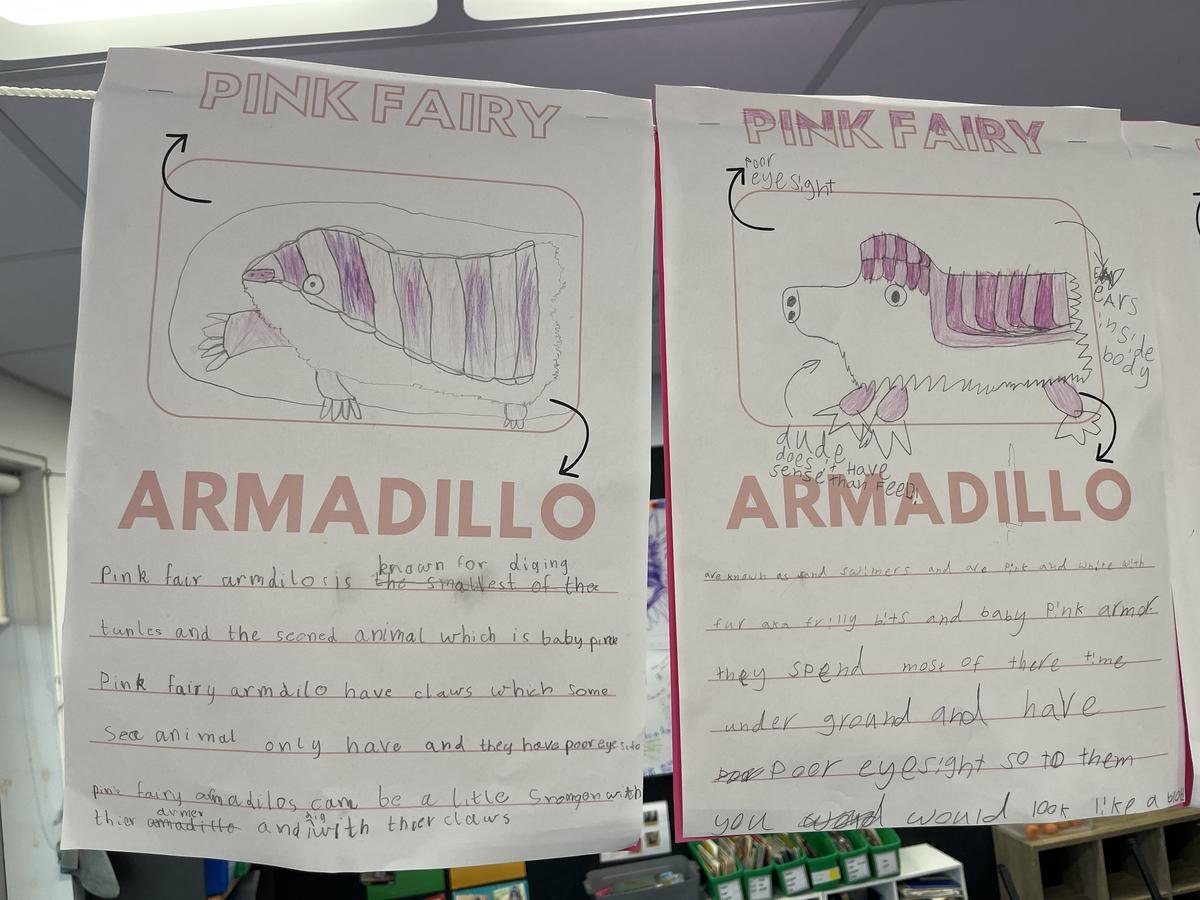 PINK FAIRY
ARMADILLO
Pink fair armdilos is the smallest of the
known for diging
tunles and the sconed animal which is baby pink
Pink fairy armadilo have claws which some
Sea animal only have and they have poor eye sito
pink fairy armadilos can be a litle Sronger with
thier armadillo and with thier claws
armer big
PINK FAIRY
poor
eyesight
EARS
insi
boide
body
dude
does t have
sense than FEED!
ARMADILLO
are known as sand swimers and are pink and white with
fur aka frilly bits and baby Pink armor
they spend most of there time
under ground and have
Poor eyesight so to them
you would look like a blob